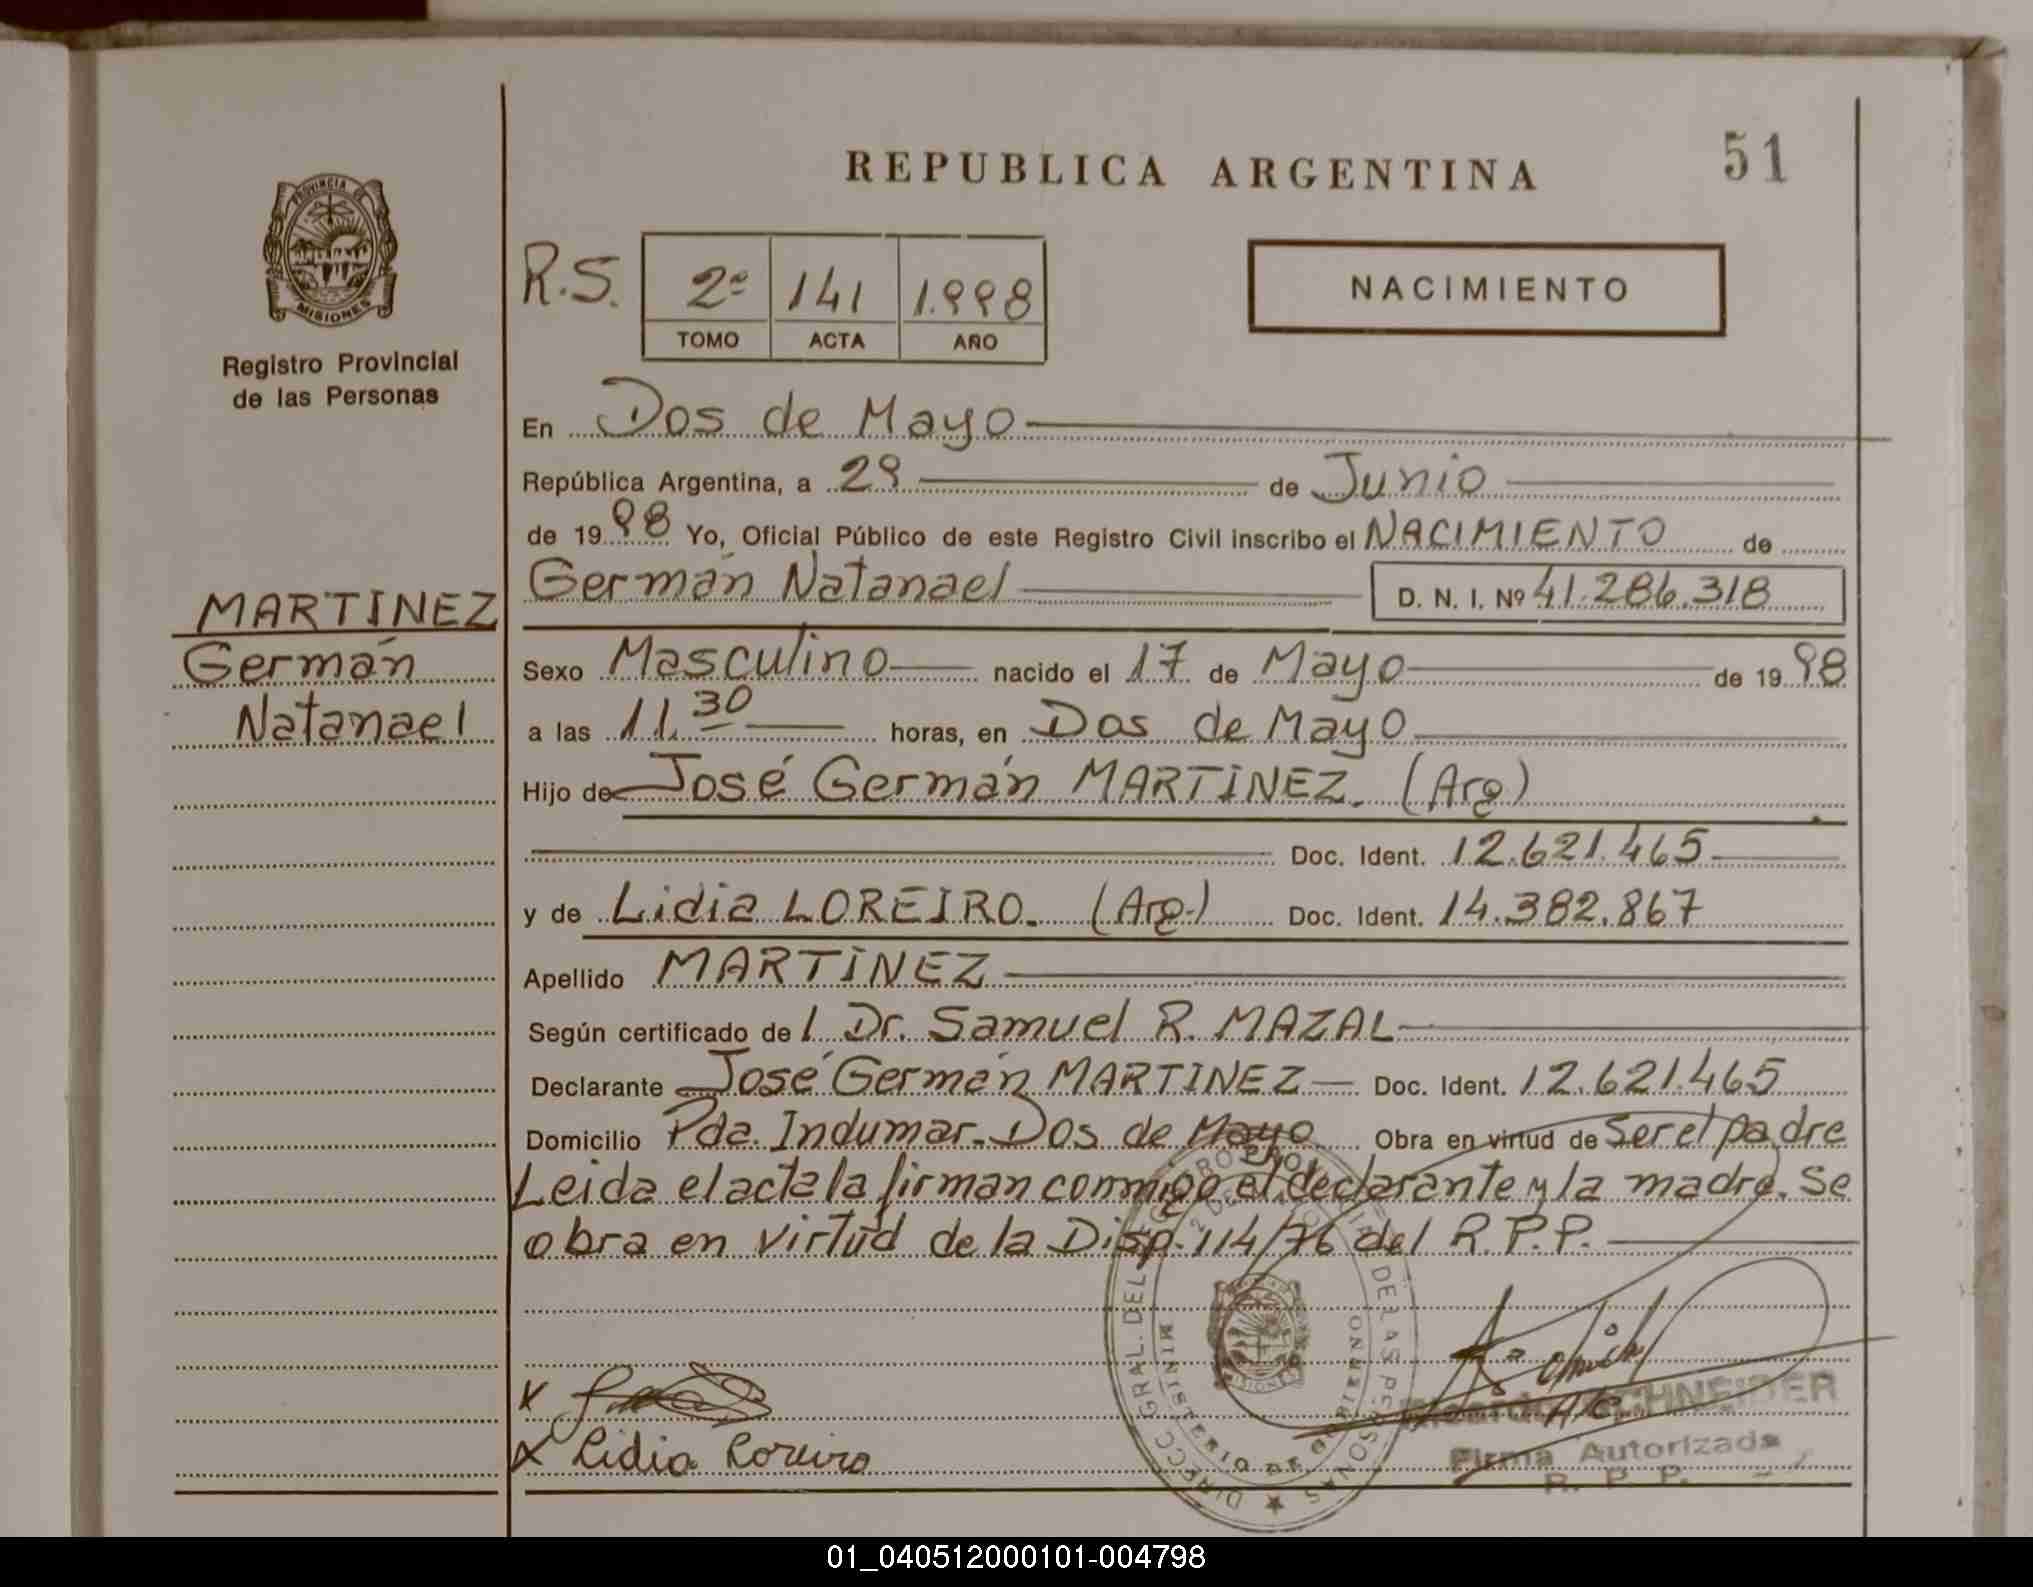 REPUBLICA ARGENTINA
51
PROVINCIA DE
MISIONES
Registro Provincial
de las Personas
R.S.
2º 141 1.998
TOMO ACTA AÑO
NACIMIENTO
En Dos de Mayo
República Argentina, a 29 de Junio
de 1998 Yo, Oficial Público de este Registro Civil inscribo el NACIMIENTO de
Germán Natanael D. N. I. Nº 41.286.318
MARTINEZ
Germán
Natanael
Sexo Masculino nacido el 17 de Mayo de 1998
a las 11.30 horas, en Dos de Mayo
Hijo de José Germán MARTINEZ. (Arg)
Doc. Ident. 12.621.465
y de Lidia LOREIRO. (Arg.) Doc. Ident. 14.382.867
Apellido MARTINEZ
Según certificado de l Dr. Samuel R. MAZAL
Declarante José Germán MARTINEZ Doc. Ident. 12.621.465
Domicilio Pda. Indumar. Dos de Mayo Obra en virtud de ser el padre
Leida el acta la firman conmigo el declarante y la madre. Se
obra en virtud de la Disp. 114/76 del R.P.P.
DIRECC GRAL. DEL REGISTRO PROVINCIAL DE LAS PERSONAS
MINISTERIO DE GOBIERNO
MISIONES
x
x Lidia Loreiro
Ricardo SCHNEIDER
Firma Autorizada
R. P. P.
01_040512000101-004798